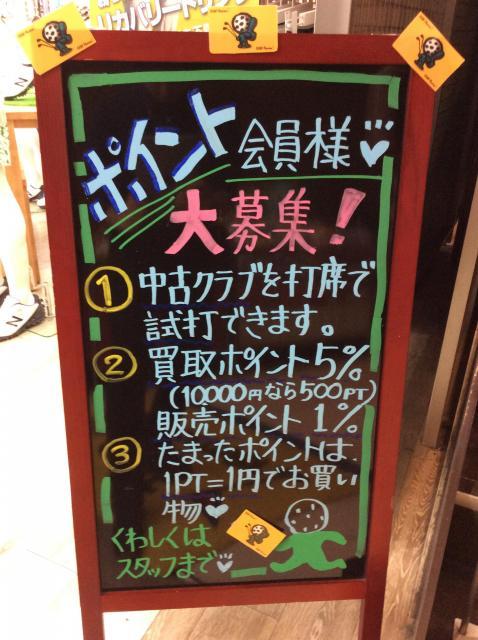 リカバリードリンク
ポイント会員様
大募集!
① 中古クラブを打席で
試打できます。
② 買取ポイント5%
(10000円なら500PT)
販売ポイント1%
③ たまったポイントは、
1PT=1円でお買い
物
くわしくは
スタッフまで